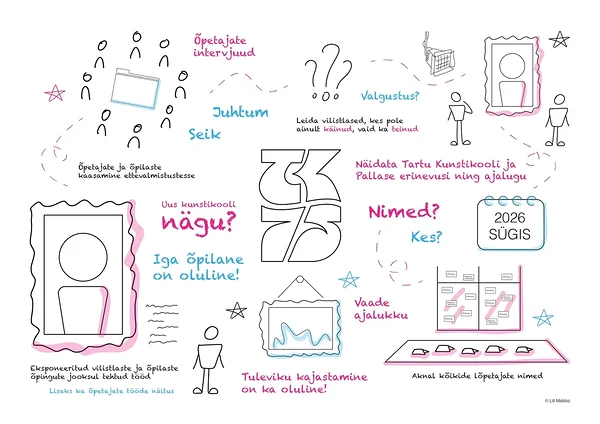 Õpetajate
intervjuud
Juhtum
Seik
Õpetajate ja õpilaste
kaasamine ettevalmistustesse
Leida vilistlased, kes pole
ainult käinud, vaid ka teinud
Valgustus?
Näidata Tartu Kunstikooli ja
Pallase erinevusi ning ajalugu
Uus kunstikooli
nägu?
Iga õpilane
on oluline!
Nimed?
Kes?
2026
SÜGIS
Vaade
ajalukku
Eksponeeritud vilistlaste ja õpilaste
õpingute jooksul tehtud tööd
Lisaks ka õpetajate tööde näitus
Tuleviku kajastamine
on ka oluline!
Aknal kõikide lõpetajate nimed